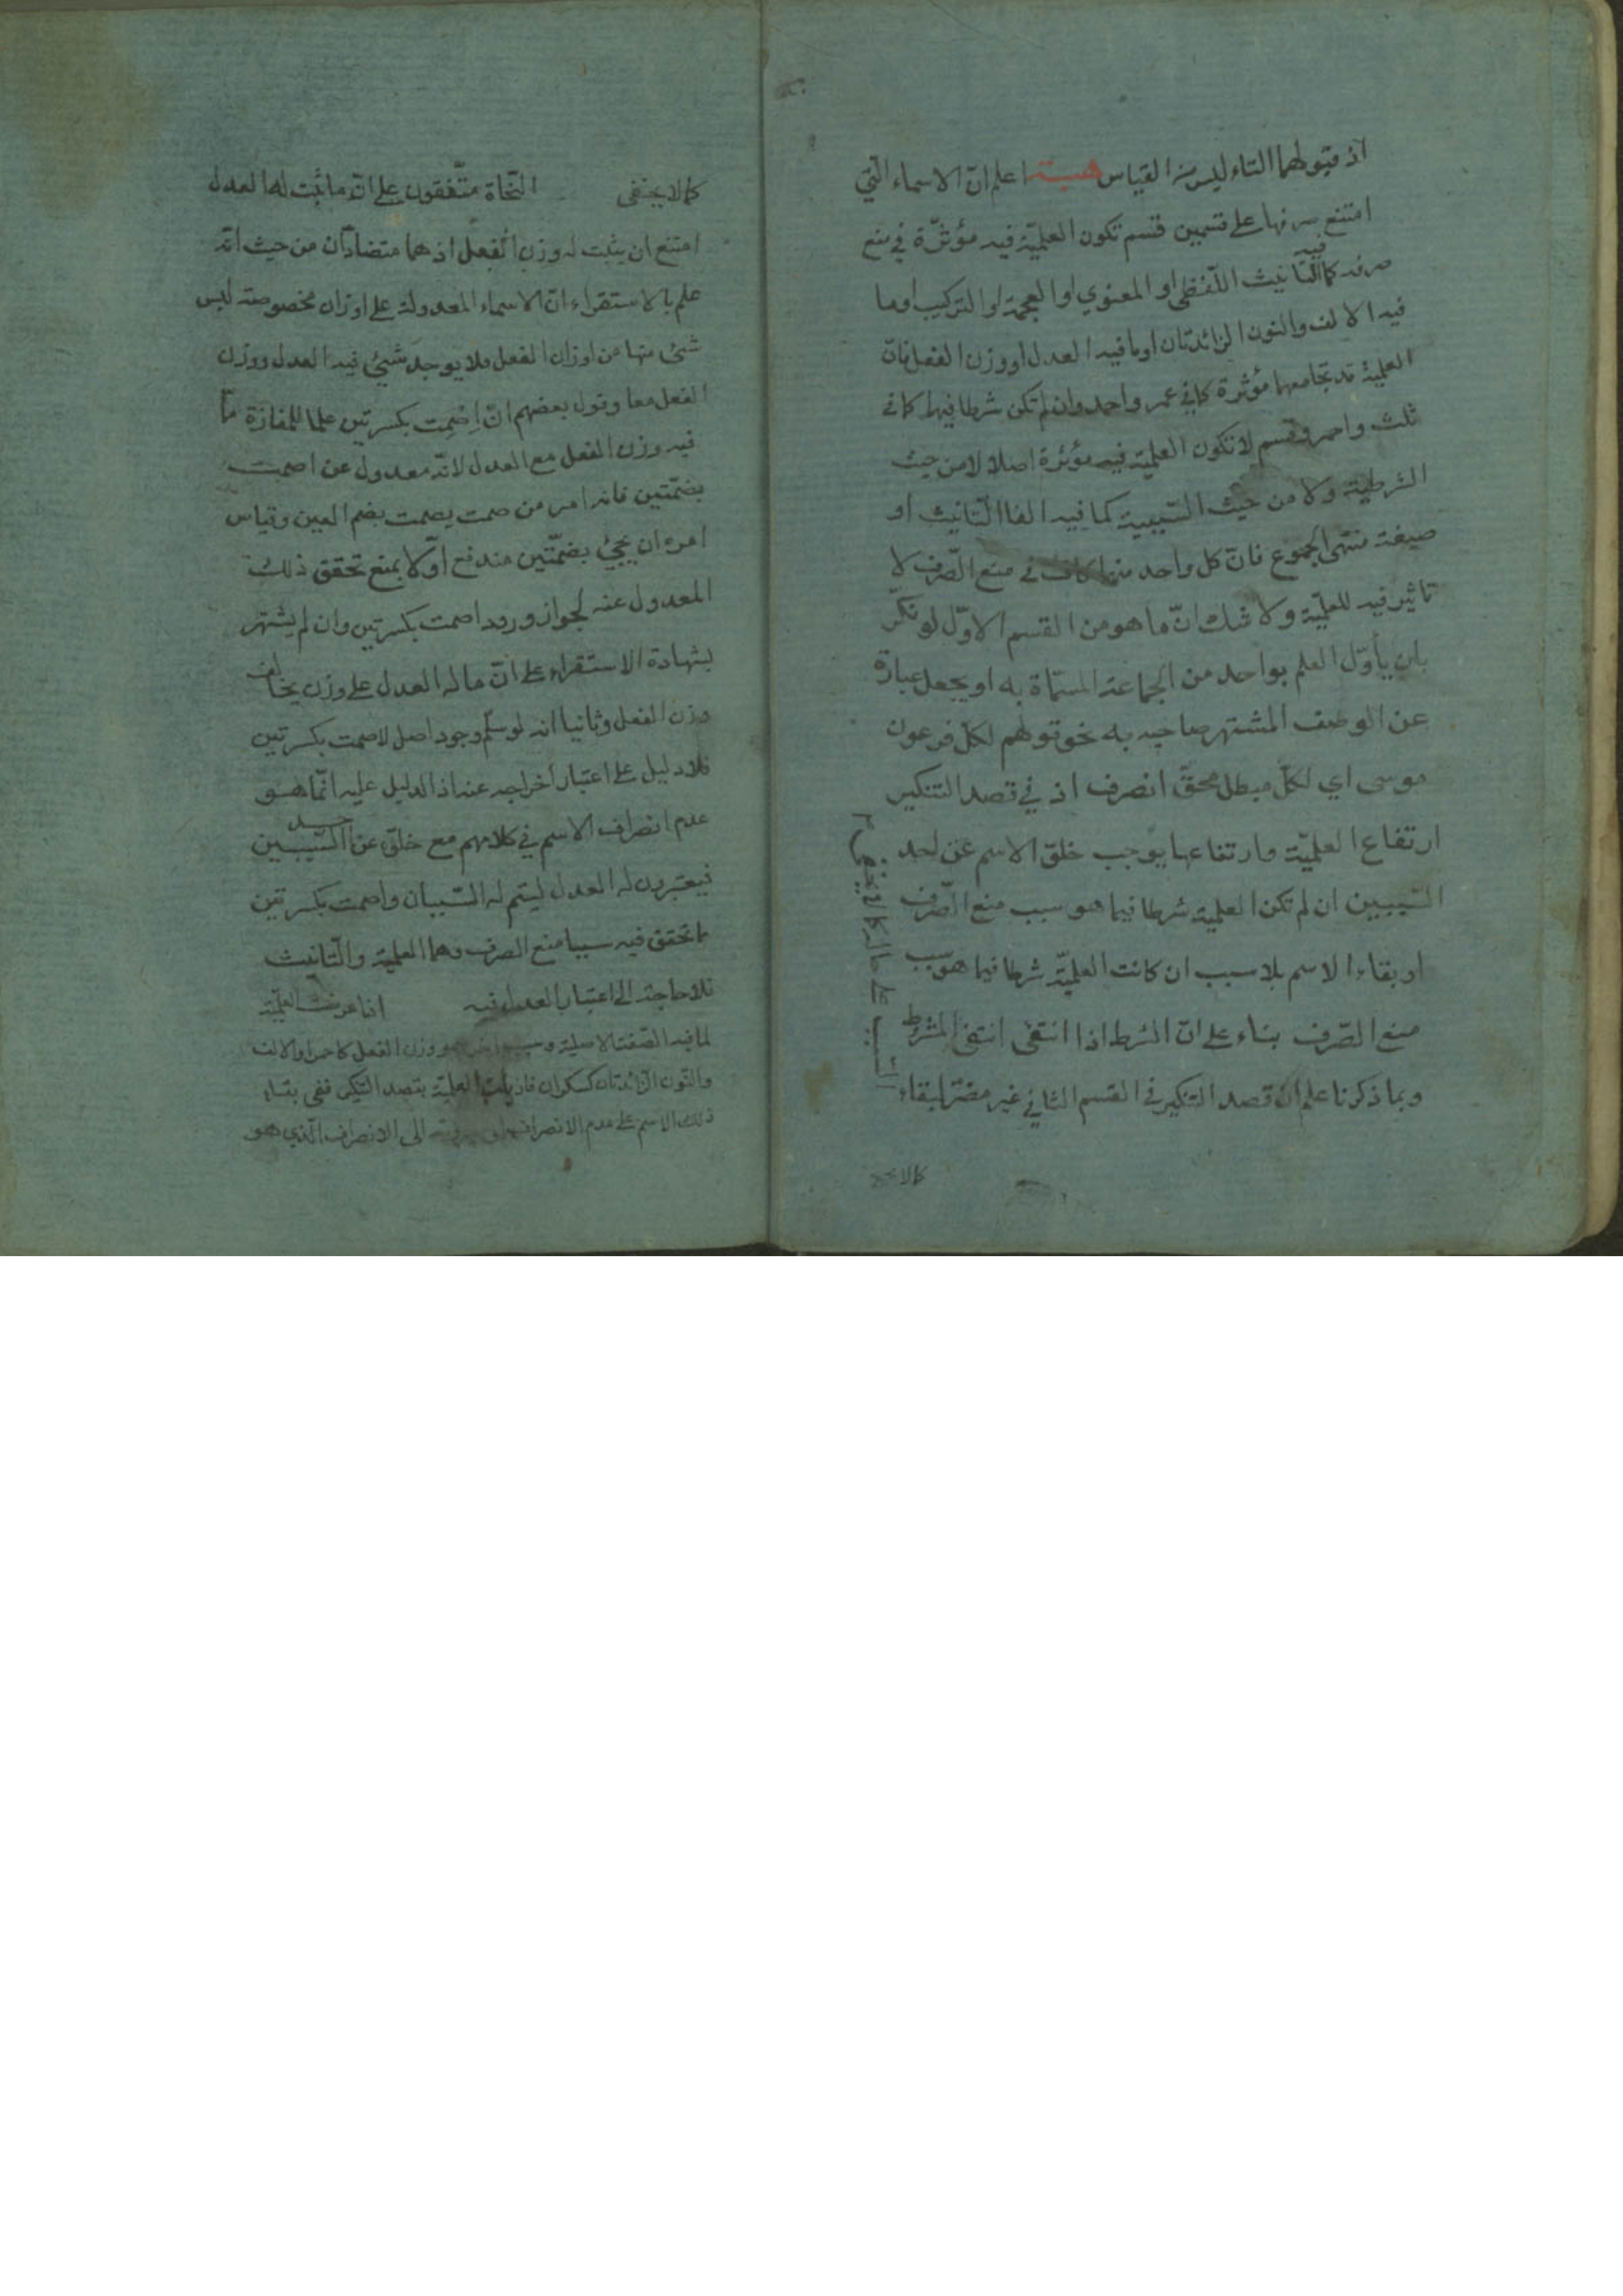 اذ قبولهما التاء ليس من القياس اعلم انّ الاسماء التي
امتنع صرفها على قسمين قسم تكون العلميّة فيه مؤثّرة في منع
صرفه كما فيه التّأنيث اللّفظي او المعنوي او العجمة او التركيب او ما
فيه الالف والنون الزائدتان او ما فيه العدل او وزن الفعل فانّ
العلمية قد تجامعها مؤثرة كما في عمر واحمد وان لم تكن شرطا فيها كما في
ثلث واحمر وقسم لا تكون العلميّة فيه مؤثرة اصلا لا من حيث
الشرطية ولا من حيث السّببية كما فيه الفا التّأنيث او
صيغة منتهى الجموع فانّ كل واحد منهما كاف في منع الصّرف لا
تاثير فيه للعلميّة ولا شك انّ ما هو من القسم الاوّل لو نكّر
بان يأوّل العلم بواحد من الجماعة المسمّاة به او يجعل عبارة
عن الوصف المشتهر صاحبه به نحو قولهم لكلّ فرعون
موسى اي لكلّ مبطل محقّ انصرف اذ في قصد التنكير
ارتفاع العلميّة وارتفاعها يوجب خلوّ الاسم عن احد
السّببين ان لم تكن العلمية شرطا فيما هو سبب منع الصّرف
او بقاء الاسم بلا سبب ان كانت العلميّة شرطا فيما هو سبب
منع الصّرف بناء على انّ الشرط اذا انتفى انتفى المشروط
وبما ذكرنا علم انّ قصد التنكير في القسم الثاني غير مضرّ لبقاء
على حاله كما لا يخفى
كما لا يخفى
كما لا يخفى النّحاة متّفقون على انّ ما ثبت له العدل
امتنع ان يثبت له وزن الفعل اذ هما متضادّان من حيث انّه
علم بالاستقراء انّ الاسماء المعدولة على اوزان مخصوصة ليس
شئ منها من اوزان الفعل فلا يوجد شيئ فيه العدل ووزن
الفعل معا وقول بعضهم انّ اِصْمِت بكسرتين علما للمفازة ممّا
فيه وزن الفعل مع العدل لانّه معدول عن اصمت
بضمّتين فانه امر من صمت يصمت بضم العين وقياس
امره ان يجيئ بضمّتين مندفع اوّلا بمنع تحقق ذلك
المعدول عنه لجواز ورود اصمت بكسرتين وان لم يشتهر
بشهادة الاستقراء على انّ ما له العدل على وزن يخالف
وزن الفعل وثانيا انه لو سلّم وجود اصل لاصمت بكسرتين
فلا دليل على اعتبار اخراجه عنه اذ الدليل عليه انّما هو
عدم انصراف الاسم في كلامهم مع خلوّه عن احد السّببين
فيعتبرون له العدل ليتم له السّببان واصمت بكسرتين
ما تحقق فيه سببا منع الصرف وهما العلمية والتّانيث
فلا حاجة الى اعتبار العدل فيه اذا عرضت العلميّة
لما فيه الصّفة الاصلية وسبب اخر هو وزن الفعل كاحمر او الالف
والنّون الزّائدتان كسكران فاذا زالت العلميّة بقصد التنكير ففي بقاء
ذلك الاسم على عدم الانصراف الى الانصراف الّذي هو